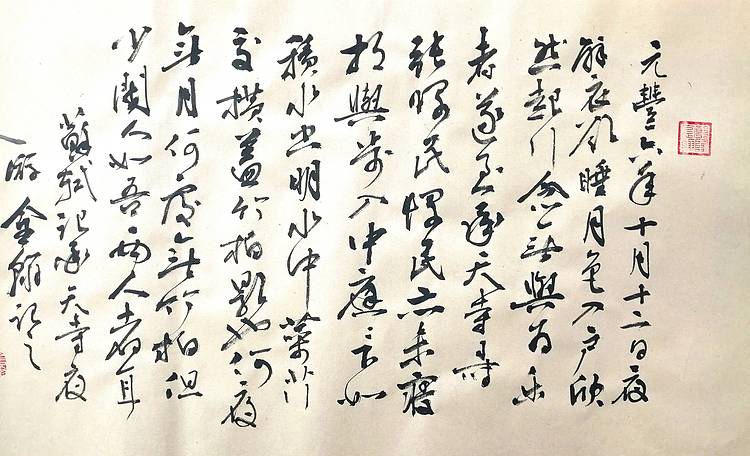 元豐六年十月十二日夜
解衣欲睡月色入戶欣
然起行念無與為樂
者遂至承天寺尋
張懷民懷民亦未寢
相與步入中庭〻下如
積水空明水中藻荇
交橫蓋竹柏影也何夜
無月何處無竹柏但
少閑人如吾兩人者耳
蘇軾記承天寺夜
游金